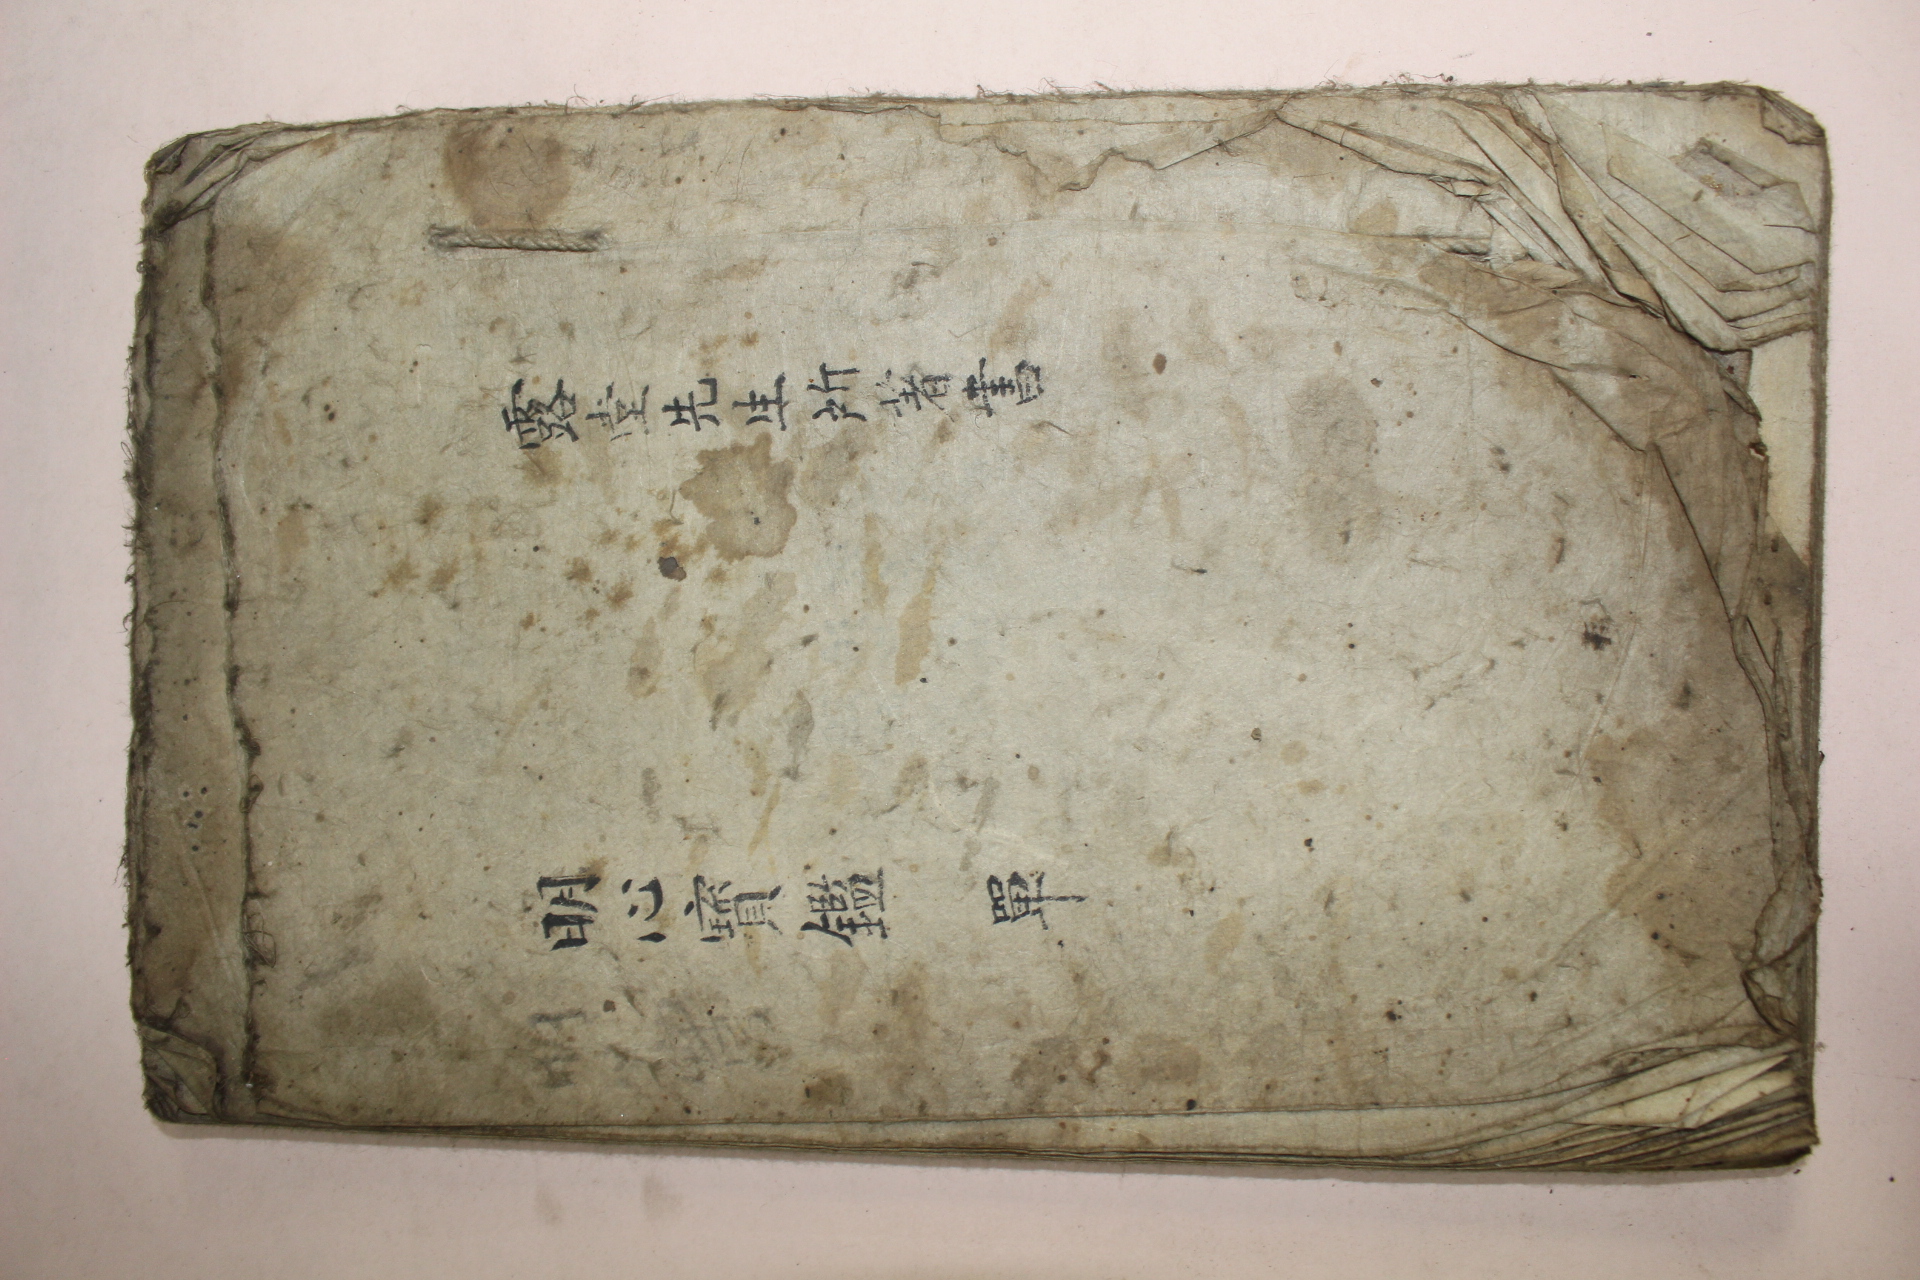 露堂先生所著書
明心寶鑑 單